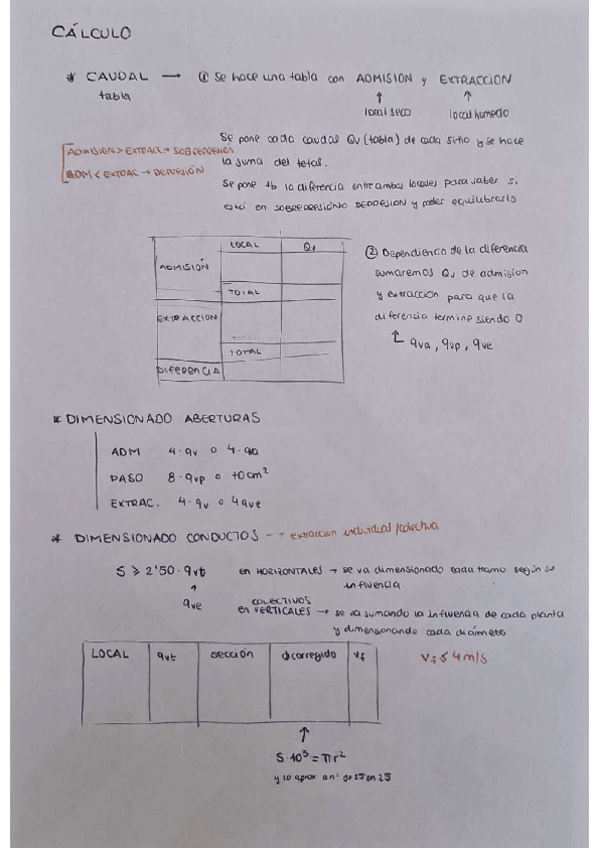 CÁLCULO
* CAUDAL → ① Se hace una tabla con ADMISION y EXTRACCION
tabla
local seco
local humedo
Se pone cada caudal Qv (tabla) de cada sitio y se hace
la suma del total.
ADMISION > EXTRACC → SOBREPRESION
ADM < EXTRAC → DEPRESIÓN
Se pone tb la diferencia entre ambos locales para saber si
está en SOBREPRESIÓN O DEPRESION y poder equilibrarlo
LOCAL Qv
ADMISIÓN
TOTAL
EXTRACCION
TOTAL
DIFERENCIA
② Dependiendo de la diferencia
sumaremos Qv de admision
y extracción para que la
diferencia termine siendo 0
qva, qvp, qve
* DIMENSIONADO ABERTURAS
ADM 4·qv o 4·qva
PASO 8·qvp o 70cm²
EXTRAC. 4·qv o 4qve
* DIMENSIONADO CONDUCTOS -→ extraccion individual/colectiva
S ≥ 2'50·qvt
qve
en HORIZONTALES → se va dimensionado cada tramo según su
influencia
COLECTIVOS
en VERTICALES → se va sumando la influencia de cada planta
y dimensionando cada diámetro
LOCAL qvt sección ϕ corregido vf
Vf ≤ 4 m/s
S·10³ = πr²
y lo aprox a nº de 25 en 25